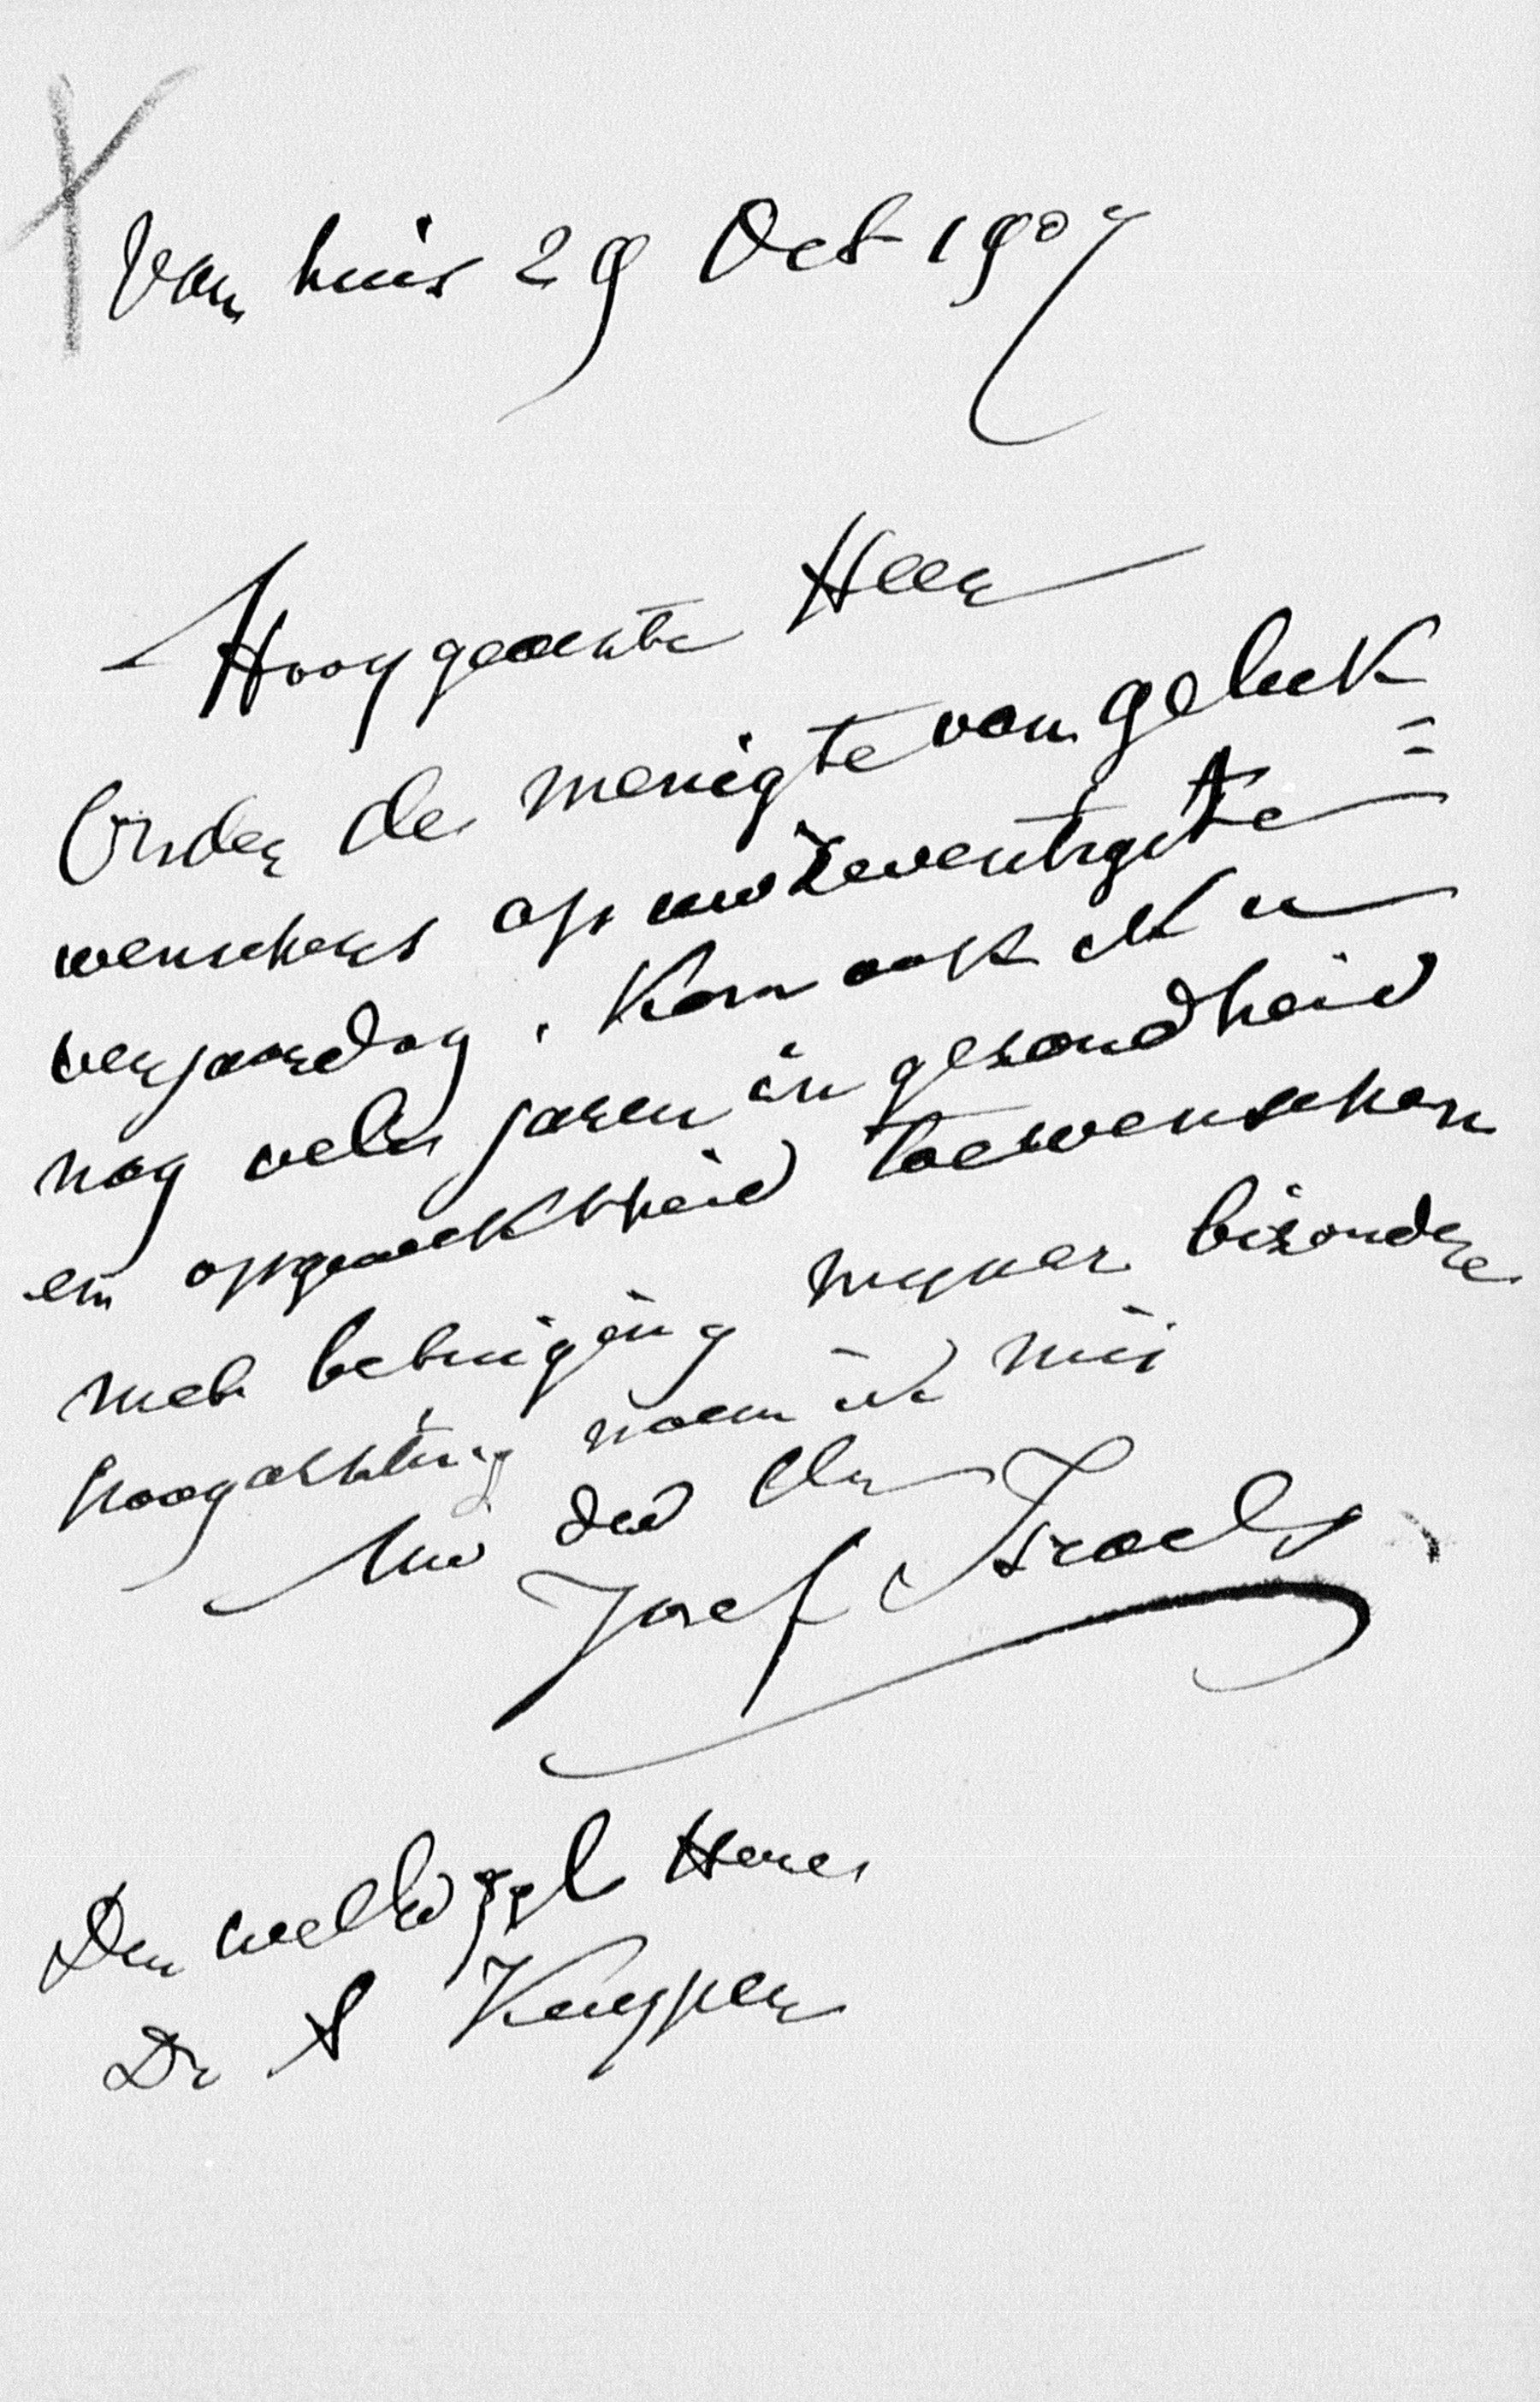 Van huis 29 Oct 1907
Hooggeachte Heer
Onder de menigte van geluk=
wenschers op uw zeventigste
verjaardag. Kom ook ik u
nog vele jaren in gezondheid
en opgewektheid toewenschen
met betuiging mijner bizondere
hoogachting noem ik mij
Uw dw dr
Jozef Israels
Den weledzgel Heer
Dr A Kuyper